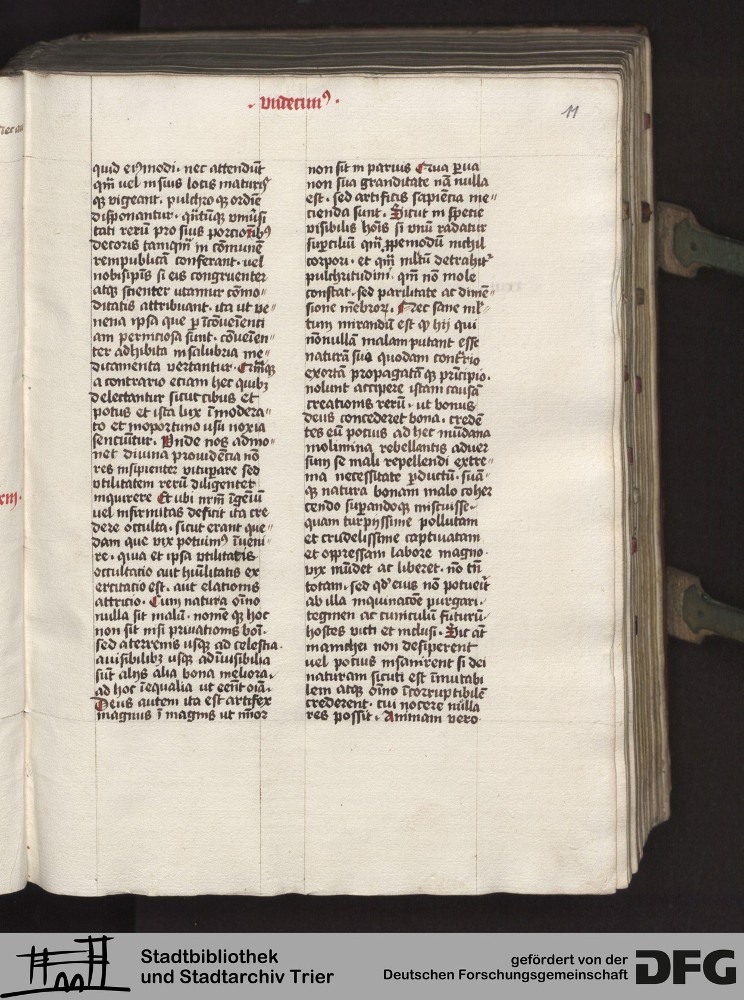 · vndecimꝰ ·
11
quid eiꝰmodi · nec attendūt
qm̄ vel in suis locis naturisqꝫ
vigeant · pulchro qꝫ ordīe
disponantur · qn̄tūqꝫ vniūsi
tati rerū pro suis portionibꝰ
decoris tamqm̄ in cōmunē
rempublicā conferant · vel
nobisipīs si eis congruenter
atqꝫ scienter vtamur cōmo〃
ditatis attribuant · ita vt ve〃
nena ipsa que p īconueniēti
am perniciosa sunt · cōuenien〃
ter adhibita in salubria me〃
dicamenta vertantur · Cūqꝫ
a contrario etiam hec quibꝫ
delectantur sicut cibus et
potus et ista lux īmodera〃
to et inoportuno vsu noxia
senciūtur · Vnde nos admo〃
net diuina prouidēcia nō
res insipienter vitupare sed
vtilitatem rerū diligenter
inquirere Et vbi nrm̄ īgeniū
vel infirmitas deficit ita cre
dere occulta · sicut erant que〃
dam que vix potuimꝰ īueni〃
re · quia et ipsa vtilitatis
occultatio aut hūilitatis ex
ercitatio est · aut elationis
attricio · Cum natura oīno
nulla sit malū · nomēqꝫ hoc
non sit nisi priuationis boī ·
sed a terrenis vsqꝫ ad celestia ·
a visibilibꝫ vsqꝫ ad īuisibilia
sūt alijs alia bona meliora ·
ad hoc īequalia vt eēnt oīa ·
Deus autem ita est artifex
magnus ī magnis vt mīor
non sit in paruis Que parua
non sua granditate nā nulla
est · sed artificis sapiēcia me〃
cienda sunt · Sicut in specie
visibilis hoīs si vnū radatur
supciliū qm̄ ppemodū nichil
corpori · et qm̄ ml̄tū detrahitᷣ
pulchritudini · qm̄ non mole
constat · sed parilitate ac dimē〃
sione mēbroꝝ · Nec sane ml̄〃
tum mirandū est qꝫ hij qui
nōnullā malam putant esse
naturā suo quodam contrīo
exortā propagatāqꝫ prīcipio ·
nolunt accipere istam causā
creationis rerū · vt bonus
deus conderet bona · credē〃
tes eū potius ad hec mūdana
molimina rebellantis aduer
sum se mali repellendi extre〃
ma necessitate pductū · suā〃
qꝫ natura bonam malo coher
cendo supandoqꝫ miscuisse ·
quam turpissime pollutam
et crudelissime captiuatam
et oppressam labore magno
vix mūdet ac liberet · nō tn̄
totam · sed qd̄ eius nō potuerit
ab illa inquinatōe purgari ·
tegmen ac vinculū futurū
hostis victi et inclusi · Sic aūt
manichei non desiperent
vel potius insanirent si dei
naturam sicuti est īmutabi
lem atqꝫ oīno īcorruptibilē
crederent · cui nocere nulla
res possit · Animam vero
xvij ·
Stadtbibliothek
und Stadtarchiv Trier
gefördert von der
Deutschen Forschungsgemeinschaft
DFG